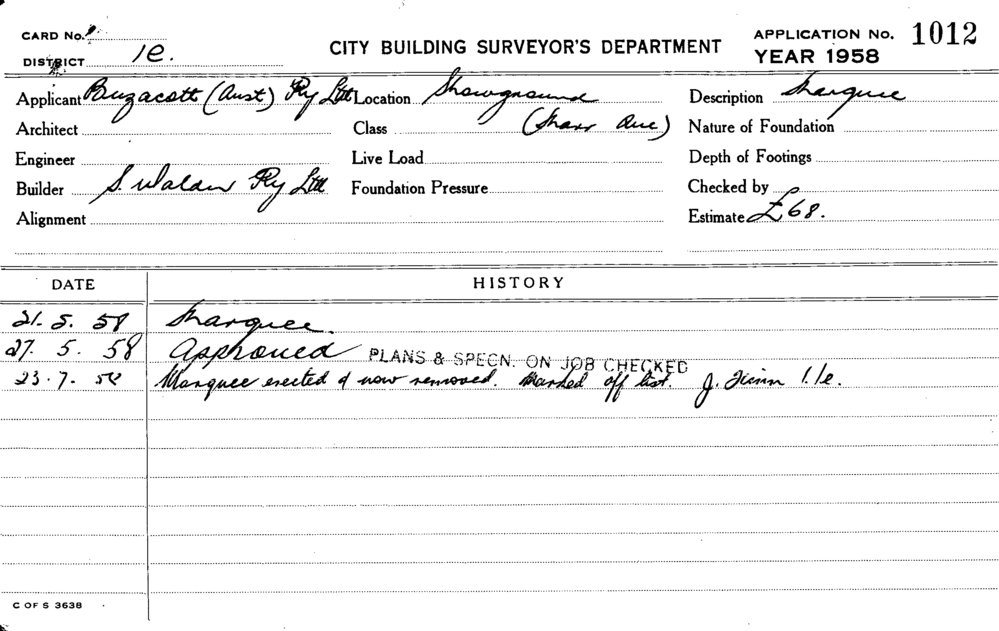 CARD No.
CITY BUILDING SURVEYOR'S DEPARTMENT
APPLICATION No. 1012
YEAR 1958
DISTRICT 1e.
Applicant Buzacott (Aust) Pty Ltd Location Showground Description Marquee
Architect Class Nature of Foundation
Engineer Live Load Depth of Footings
Builder S. Walder Pty Ltd Foundation Pressure Checked by
Alignment Estimate £68.
DATE HISTORY
21. 5. 58 Marquee.
27. 5. 58 Approved PLANS & SPECN. ON JOB CHECKED
23. 7. 58 Marquee erected & now removed. Marked off list. J.
C OF S 3638